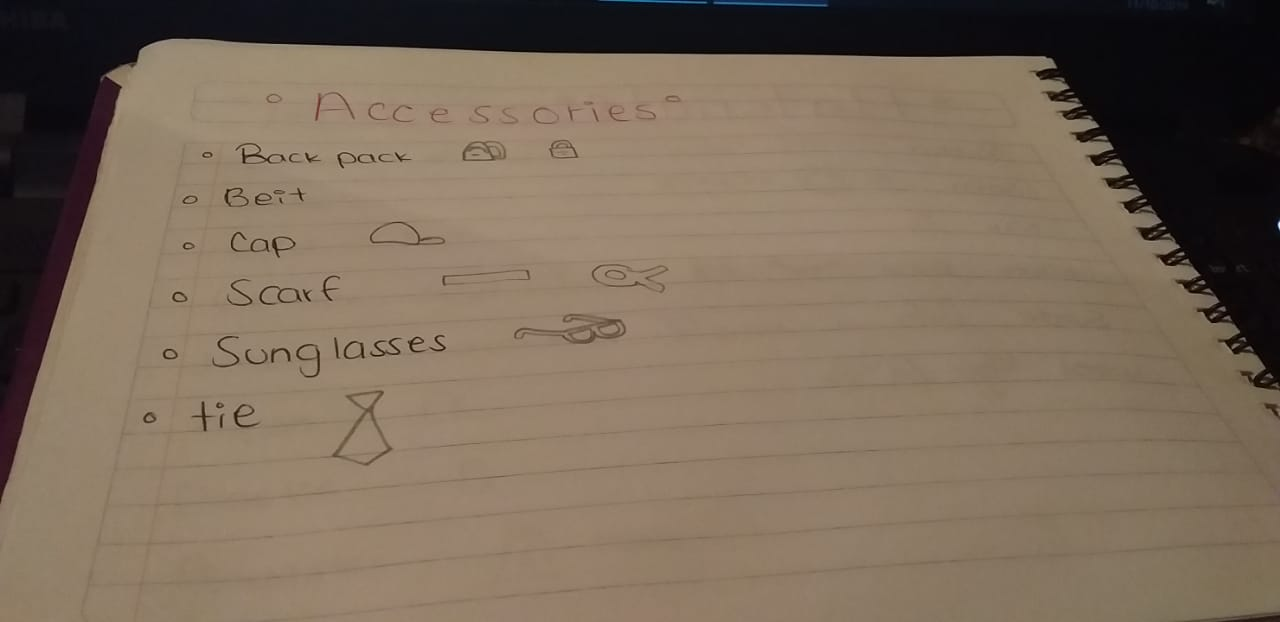 ° Accessories °
° Back pack
° Beit
° Cap
° Scarf
° Sunglasses
° tie